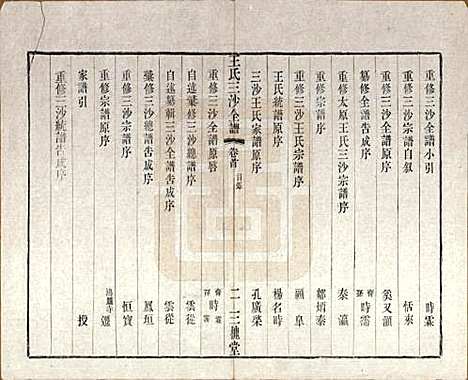 重修三沙全譜小引 時霖
重修三沙全譜自叙 恬來
重修三沙全譜原序 奚又灝
纂修全譜告成序 時霈
重修太原王氏三沙宗譜序 秦瀛
重修宗譜序 鄒炳泰
重修三沙王氏宗譜序 顧皋
王氏統譜原序 楊名時
三沙王氏家譜原序 孔廣棨
王氏三沙全譜 卷首 目錄 二 三槐堂
重修三沙全譜原序 時霈
自述纂修三沙全譜序 雲從
自述纂輯三沙全譜告成序 雲從
彙修三沙總譜告成序 鳳垣
重修三沙宗譜序 恒寶
重修宗譜序 鴻臚寺
家譜引 授
重修三沙統譜告成序